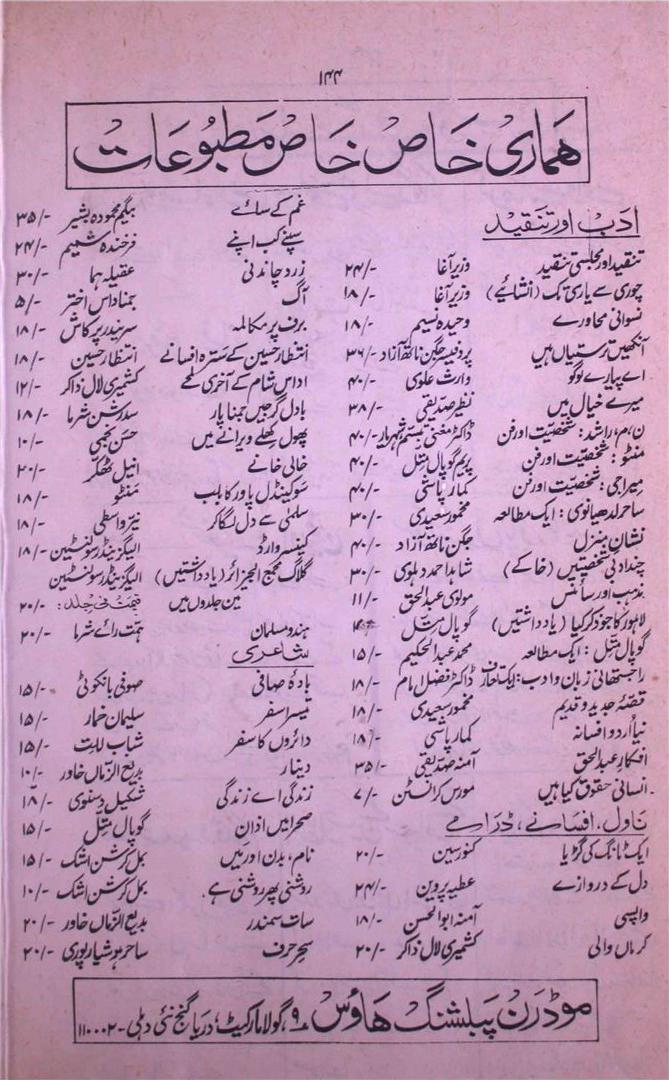 ۱۴۴
ہماری خاص خاص مطبوعات
ادب اور تنقید
تنقید اور مجلسی تنقید وزیر آغا ۲۴/-
چوری سے یاری تک (انشائیے) وزیر آغا ۱۸/-
نسوانی محاورے وحیدہ نسیم ۱۸/-
آنکھیں ترستیاں ہیں پروفیسر جگن ناتھ آزاد ۳۶/-
اے پیارے لوگو وارث علوی ۴۰/-
میرے خیال میں نظیر صدیقی ۳۸/-
ن،م، راشد: شخصیت اور فن ڈاکٹر مغنی تبسم، شہریار ۴۰/-
منٹو: شخصیت اور فن پریم گوپال متل ۴۰/-
میراجی: شخصیت اور فن کمار پاشی ۴۰/-
ساحر لدھیانوی: ایک مطالعہ مخمور سعیدی ۳۰/-
نشان منزل جگن ناتھ آزاد ۴۰/-
چند ادبی شخصیتیں (خاکے) شاہد احمد دہلوی ۳۰/-
مذہب اور سائنس مولوی عبدالحق ۱۱/-
لاہور کا جو ذکر کیا (یادداشتیں) گوپال متل
گوپال متل: ایک مطالعہ محمد عبدالحکیم ۱۵/-
راجستھانی زبان و ادب: ایک تعارف ڈاکٹر فضل امام ۱۸/-
قصۂ جدید و قدیم مخمور سعیدی ۱۸/-
نیا اردو افسانہ کمار پاشی ۱۸/-
افکار عبدالحق آمنہ صدیقی ۳۵/-
انسانی حقوق کیا ہیں مورس کرانسٹن ۷/-
ناول، افسانے، ڈرامے
ایک ٹانگ کی گڑیا کنور سین ۲۰/-
دل کے دروازے عطیہ پروین ۲۴/-
واپسی آمنہ ابوالحسن ۱۸/-
کرماں والی کشمیری لال ذاکر ۲۰/-
غم کے سائے بیگم محمودہ بشیر ۳۵/-
سپنے کب اپنے فرخندہ شمیم ۲۴/-
زرد چاندنی عقیلہ ہما ۳۰/-
آگ جمناداس اختر ۵/-
برف پر مکالمہ سریندر پرکاش ۱۸/-
انتظار حسین کے سترہ افسانے انتظار حسین ۱۸/-
اداس شام کے آخری لمحے کشمیری لال ذاکر ۱۲/-
بادل گرجیں جمنا پار سدرشن شرما ۱۸/-
پھول کھلے ویرانے میں حسن نجمی ۱۰/-
خالی خانے انیل ٹھکر ۲۰/-
سو کینڈل پاور کا بلب منٹو ۱۸/-
سلمیٰ سے دل لگا کر نیر واسطی ۱۸/-
کینسر وارڈ الیگزینڈر سولنسٹین ۱۸/-
گلاگ مجمع الجزائر (یادداشتیں) الیگزینڈر سولنسٹین
تین جلدوں میں قیمت فی جلد: ۲۰/-
ہندو مسلمان ہمت رائے شرما ۲۰/-
شاعری
بادۂ صافی صوفی بانکوٹی ۱۵/-
تیسرا سفر سلیمان خمار ۱۵/-
دائروں کا سفر شباب للت ۱۵/-
دینار بدیع الزماں خاور ۱۰/-
زندگی اے زندگی شکیل دسنوی ۱۸/-
صحرا میں اذان گوپال متل ۱۵/-
نام، بدن اور میں بمل کرشن اشک ۱۵/-
روشنی پھر روشنی ہے بمل کرشن اشک ۱۰/-
سات سمندر بدیع الزماں خاور ۲۰/-
سحر حرف ساحر ہوشیارپوری ۲۰/-
موڈرن پبلشنگ ہاؤس ۹، گولا مارکیٹ، دریا گنج نئی دہلی-۱۱۰۰۰۲